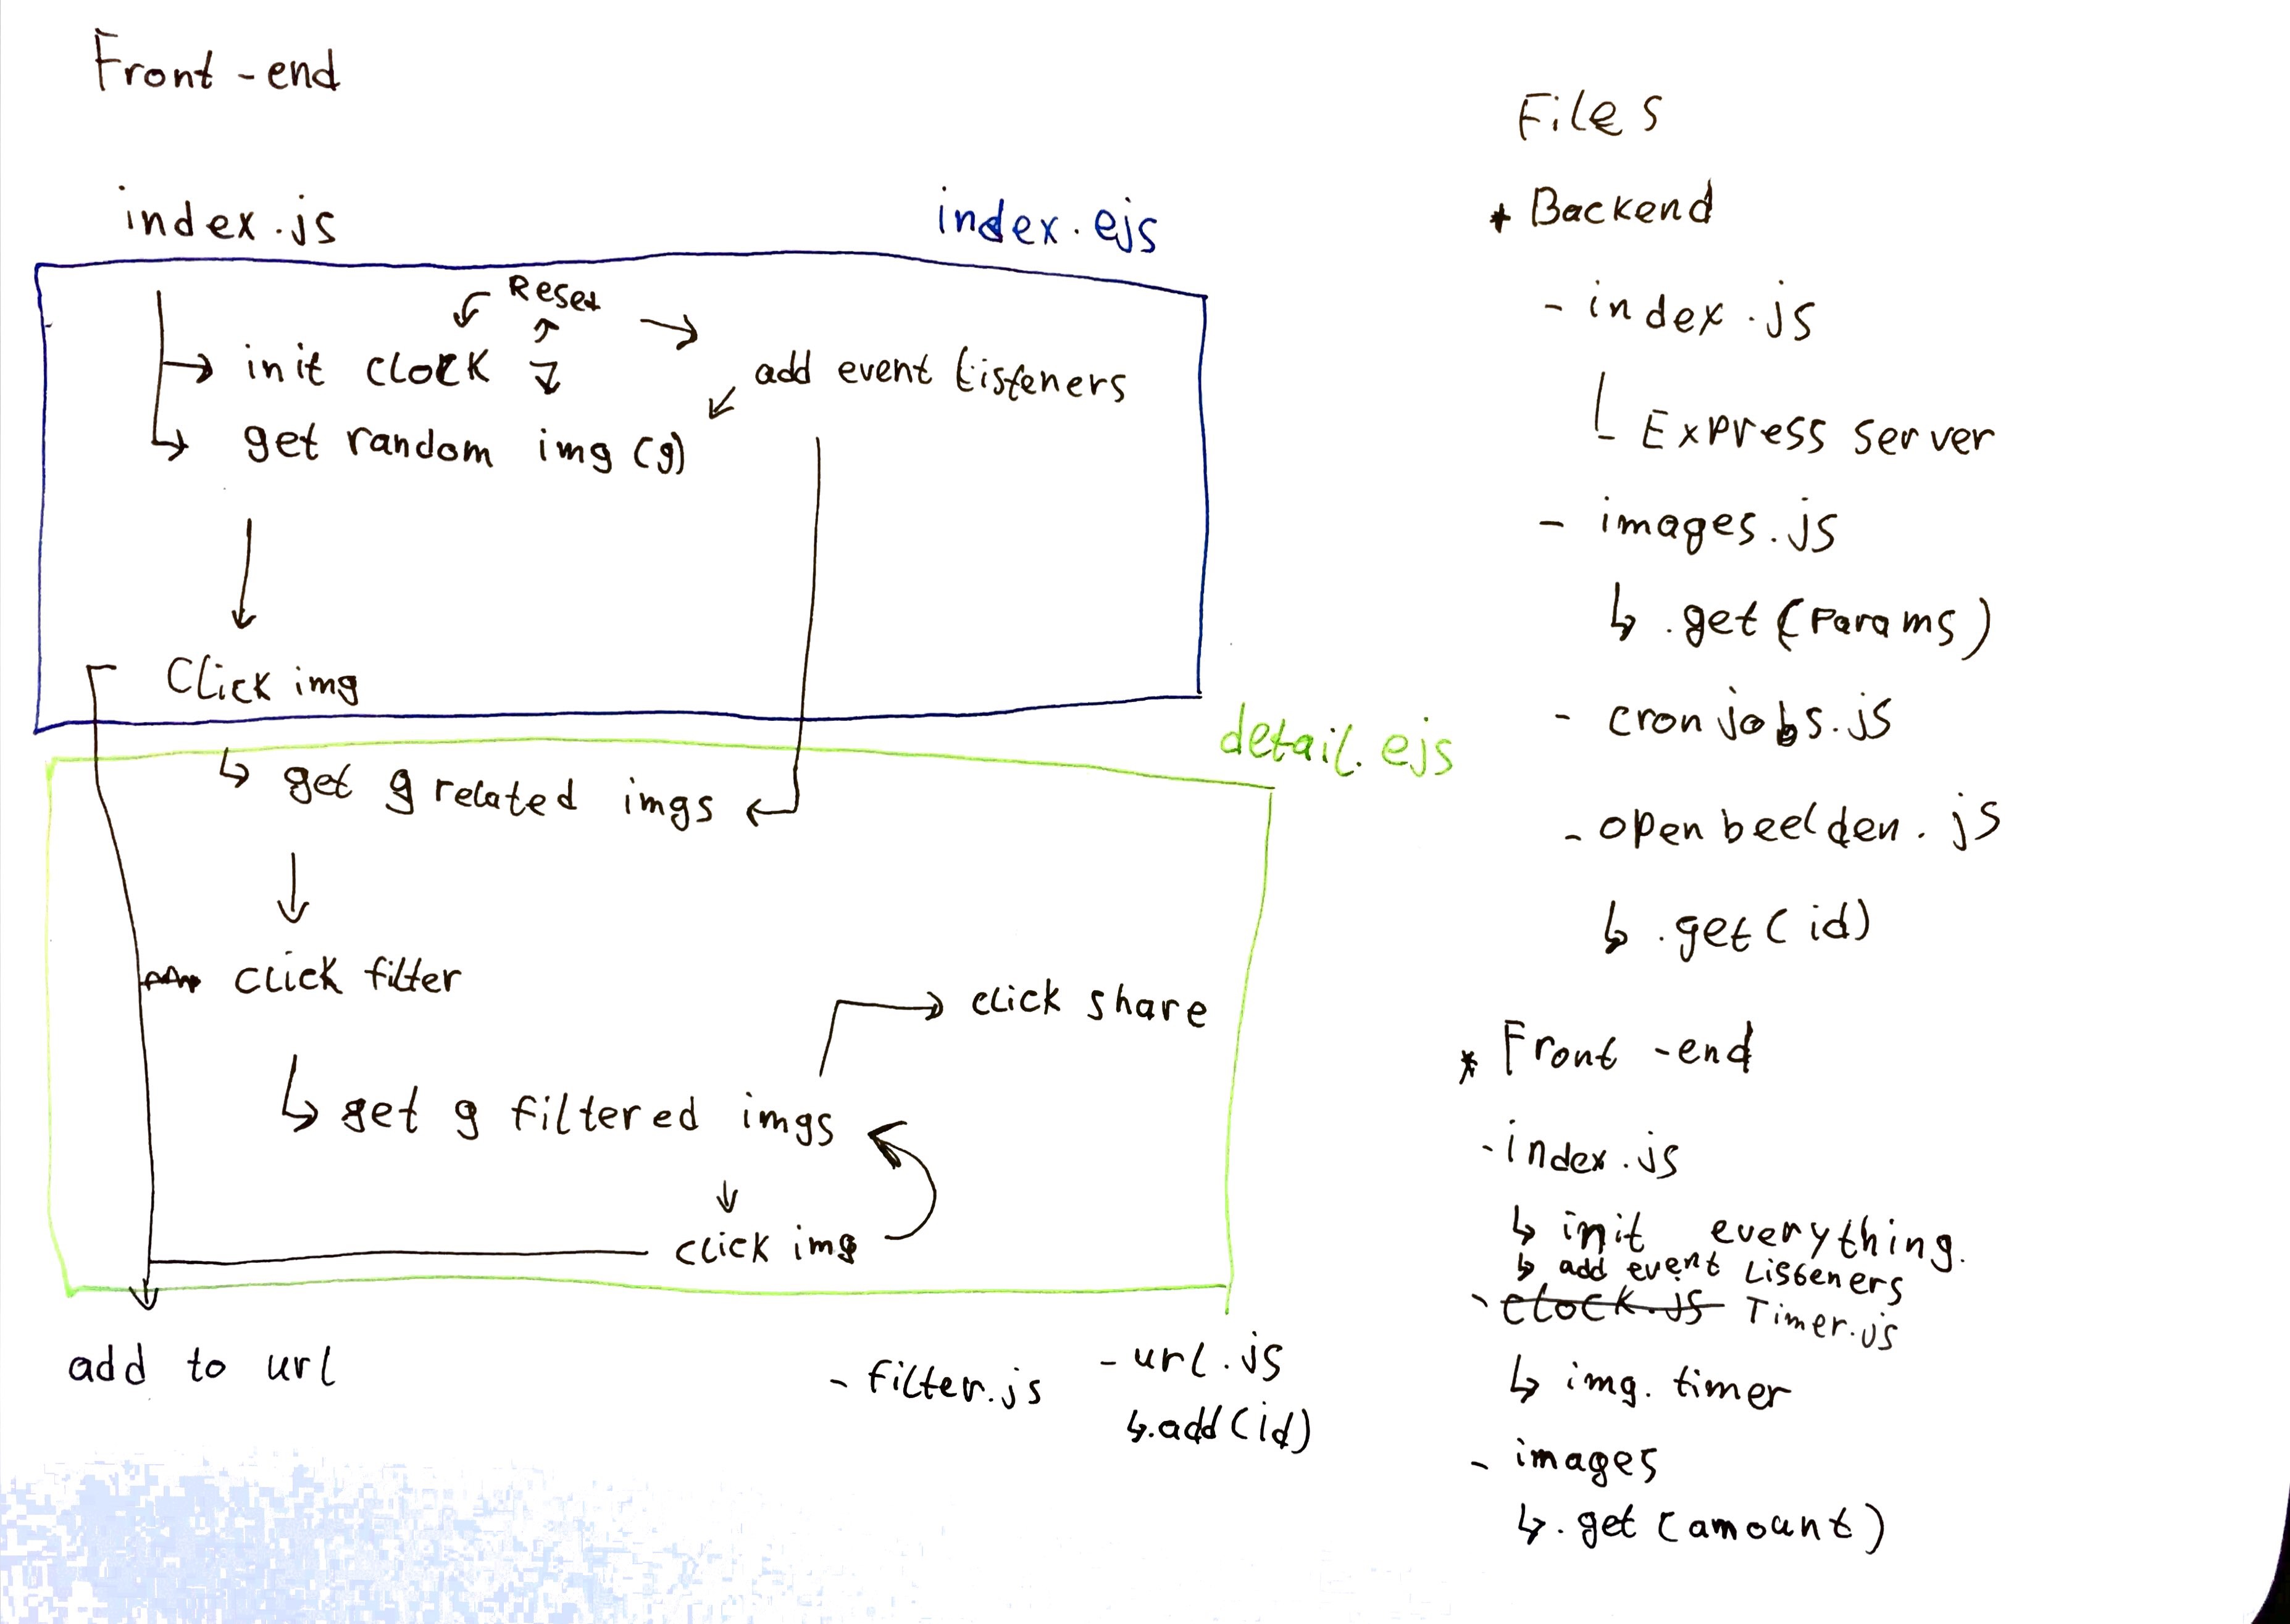 Front-end
index.js
index.ejs
Reset
init clock
add event listeners
get random img (g)
Click img
detail.ejs
get g related imgs
click filter
click share
get g filtered imgs
click img
add to url
- filter.js
- url.js
.add(id)
Files
* Backend
- index.js
Express server
- images.js
.get(params)
- cronjobs.js
- openbeelden.js
.get(id)
* Front-end
- index.js
init everything.
add event listeners
- clock.js Timer.js
img.timer
- images
.get(amount)